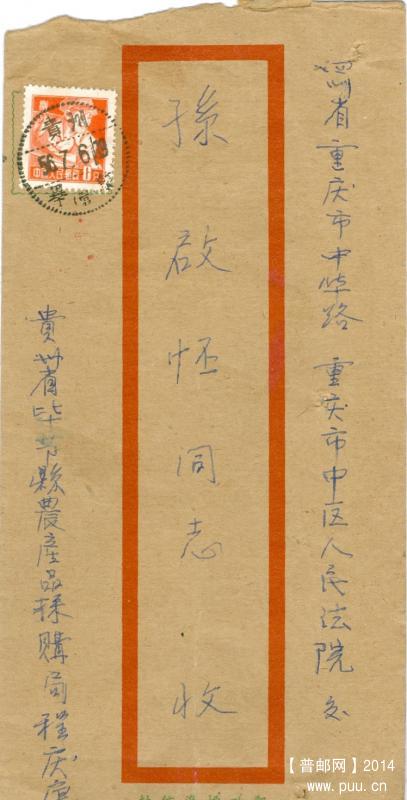 四川省重庆市中华路 重庆市中区人民法院 交
孫啟怀同志 收
貴州省毕节縣農產品採購局程庆
貴州
56.7.6
中国人民邮政 8分
【普邮网】2014
www.puu.cn